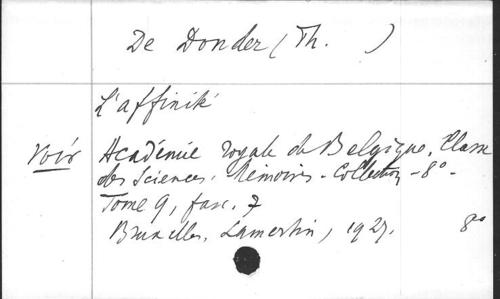 De Donder (Th. )
L'affinité
Voir Académie royale de Belgique. Classe
des Sciences. Mémoires - Collection - 8° -
Tome 9, fasc. 7
Bruxelles, Lamertin, 1927. 8°